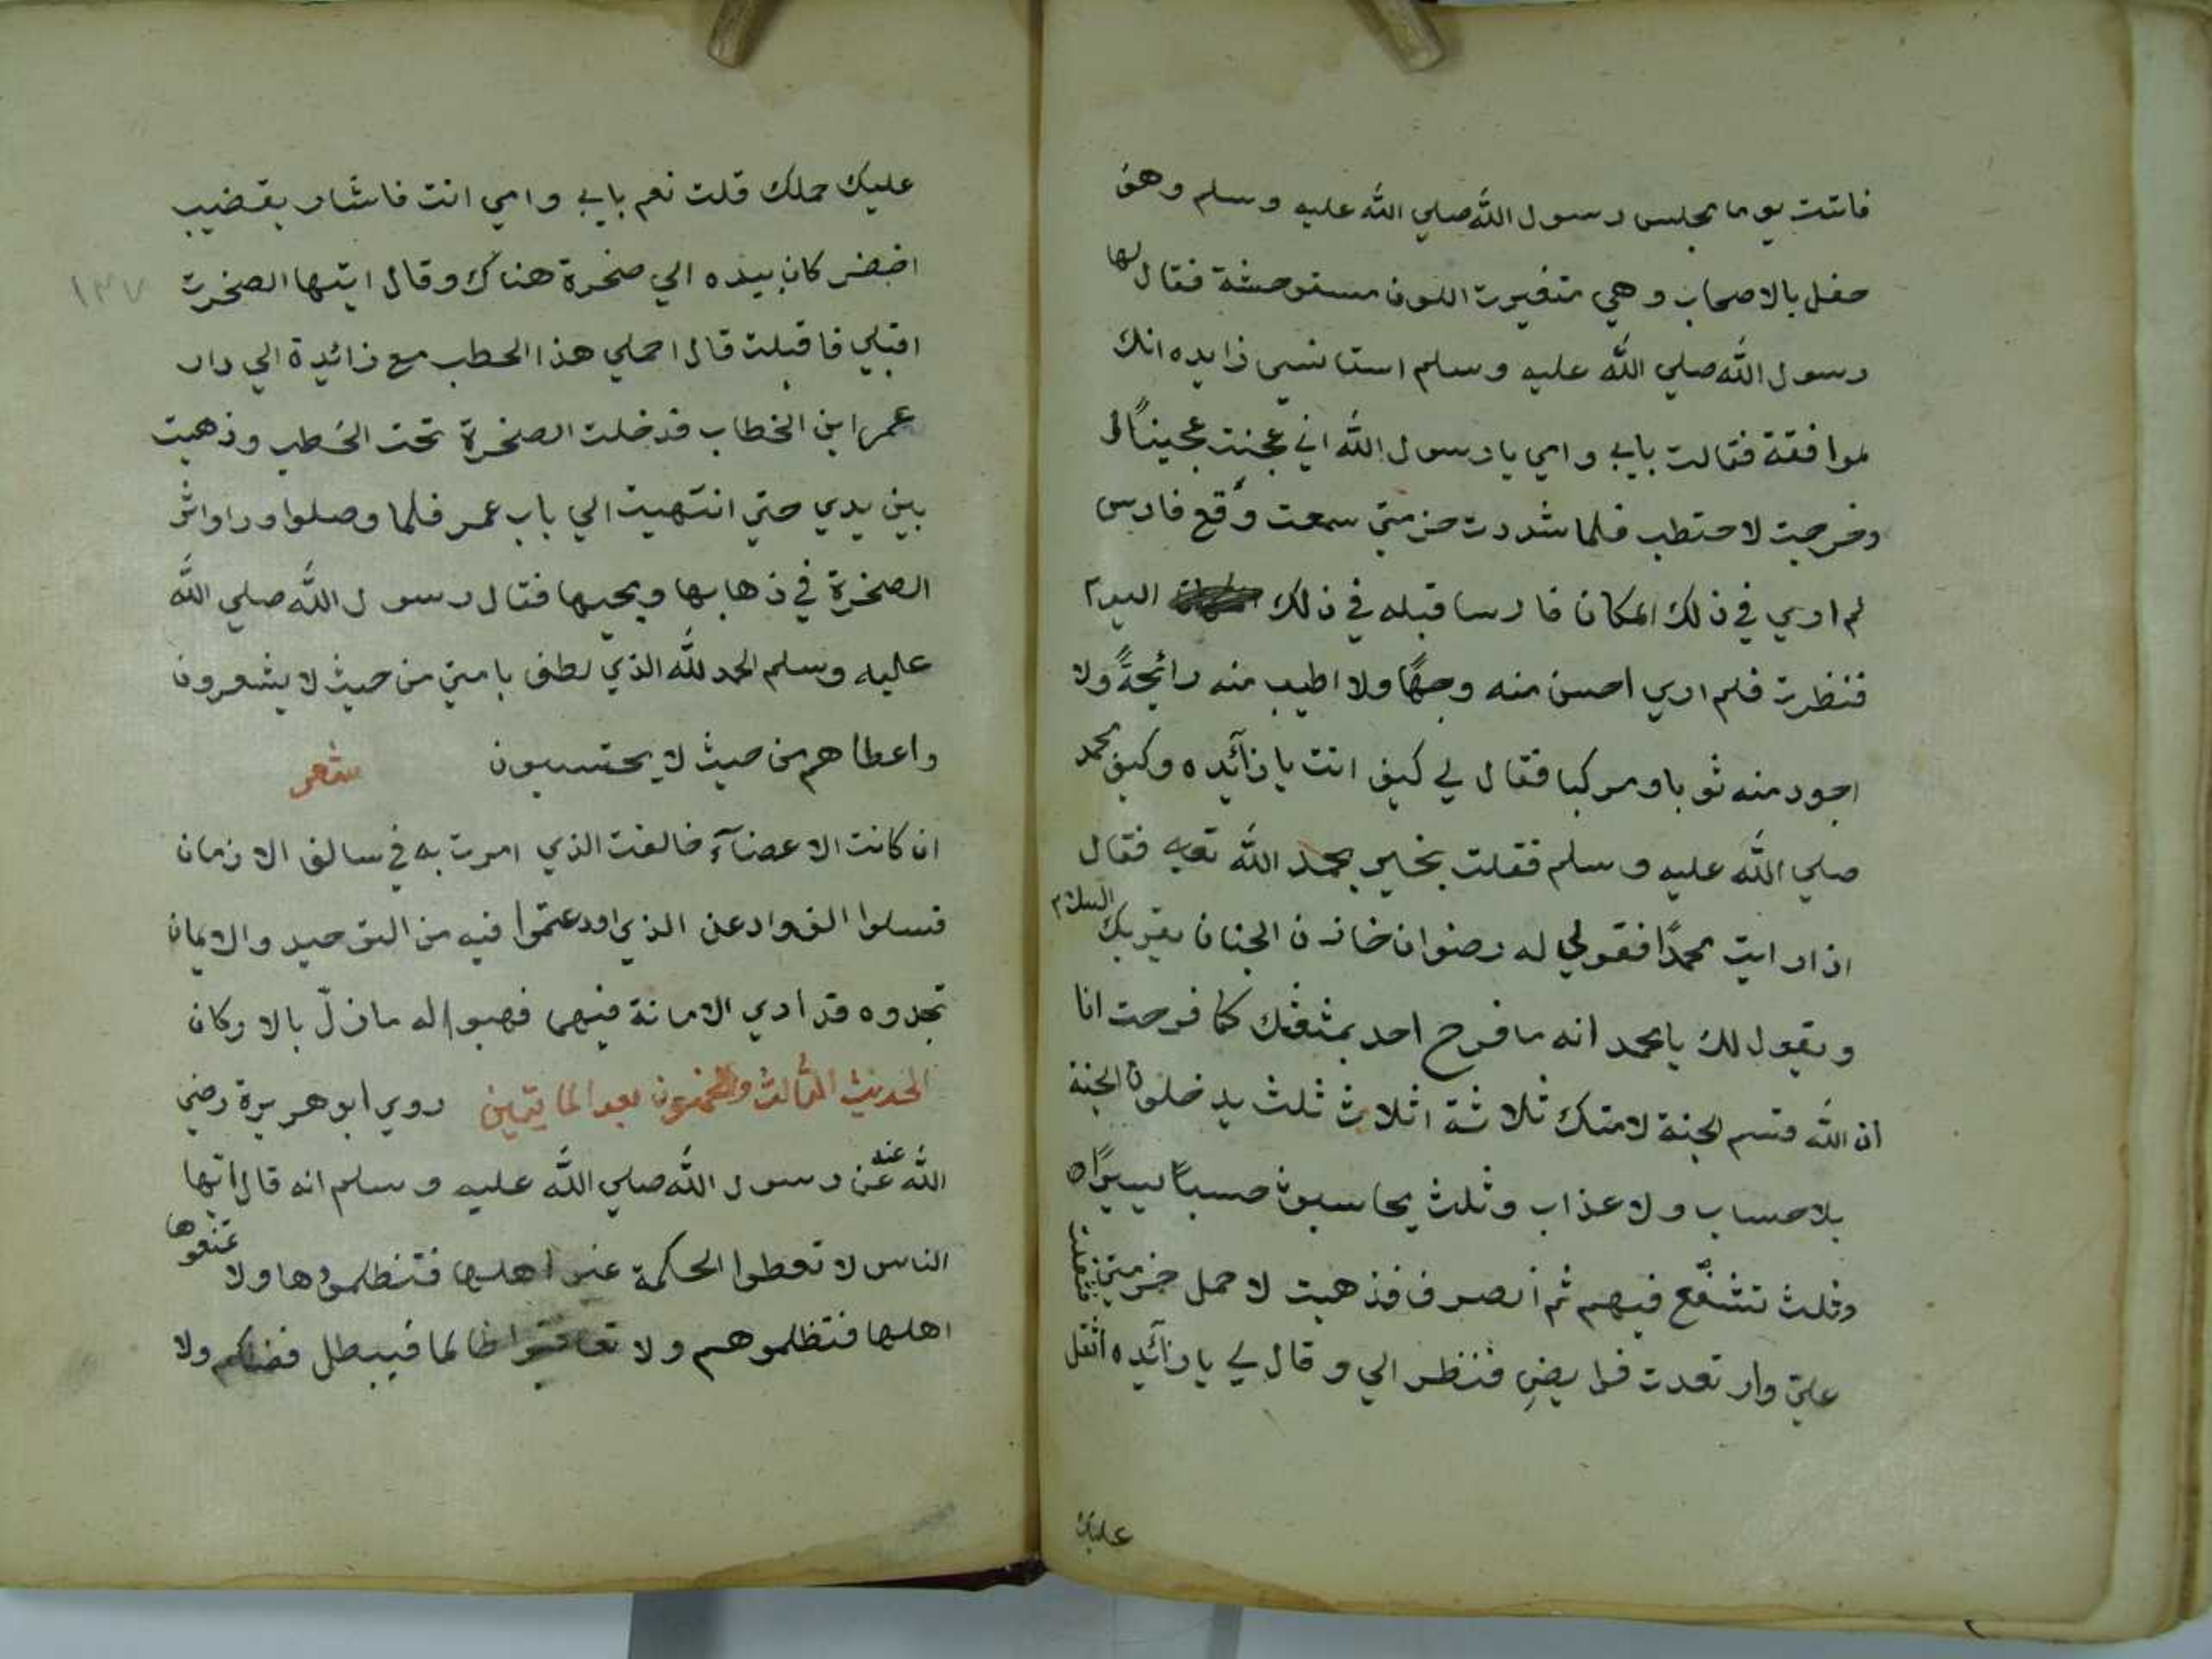 فاتت يوما مجلس رسول الله صلي الله عليه وسلم وهو
حفل بالاصحاب وهي متغيرت اللون مستوحشة فقال لها
رسول الله صلي الله عليه وسلم استانسي زايده انك
لموافقة فقالت بابي وامي يا رسول الله اني عجنت عجينًا
وخرجت لاحتطب فلما شددت حزمتي سمعت وقع فارس
لم اري في ذلك المكان فارسا قبله في ذلك اليوم
فنظرت فلم اري احسن منه وجهًا ولا اطيب منه رائحةً ولا
اجود منه ثوبا ومركبا فقال لي كيف انت يا زآئده وكيف محمد
صلي الله عليه وسلم فقلت بخير بحمد الله فقال
اذا رايت محمدًا فقولي له رضوان خازن الجنان يقريك السلام
ويقول لك يا محمد انه ما فرح احد بمثعثك كما فرحت انا
ان الله قسم الجنة لامتك ثلاثة اثلاث ثلث يدخلون الجنة
بلا حساب ولا عذاب وثلث يحاسبون حسبًا يسيرًا
وثلث تشفّع فيهم ثم انصرف فذهبت لاحمل حزمتي فثقلت
علي وارتعدت فرايضي فنظر الي وقال لي يا زآئده اثقل
عليك
عليك حملك قلت نعم بابي وامي انت فاشار بقضيب
اخضر كان بيده الي صخرة هناك وقال ايتها الصخرت
اقبلي فاقبلت قال احملي هذا الحطب مع زائدة الي دار
عمر ابن الخطاب فدخلت الصخرة تحت الحطب وذهبت
بين يدي حتي انتهيت الي باب عمر فلما وصلوا وراواثر
الصخرة في ذهابها ومجيها فقال رسول الله صلي الله
عليه وسلم الحمد لله الذي لطف بامتي من حيث لا يشعرون
واعطاهم من حيث لا يحتسبون شعر
ان كانت الاعضآء خالفت الذي امرت به في سالف الازمان
فسلوا الفواد عن الذي اودعتموا فيه من التوحيد والايمان
تجدوه قد ادي الامانة فيهما فهبوا له ما زلّ بالاركان
الحديث الثالث والخمسون بعد المايتين روي ابو هريرة رضي
الله عنه عن رسول الله صلي الله عليه وسلم انه قال ايها
الناس لا تعطوا الحكمة غير اهلها فتظلموها ولا تمنعوها
اهلها فتظلموهم ولا تعاقبوا ظالما فيبطل فضلكم ولا
١٣٧